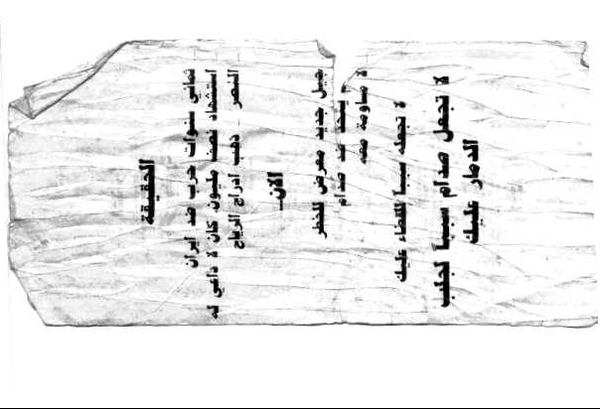 الحقيقة
ثماني سنوات حرب ضد ايران
استشهاد نصف مليون كان لا داعي له
النصر ذهب ادراج الرياح
الآن...
جيل جديد معرض للخطر
يتحد ضد صدام
لا مساومة معه
لا تجعله سبباً للقضاء عليك
لا تجعل صدام سبباً لجلب
الدمار عليك